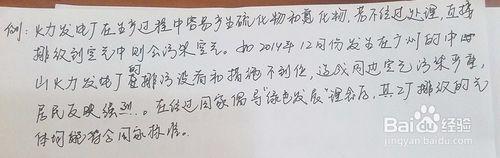 例：火力发电厂在生产过程中容易产生硫化物和氮化物，若不经过处理，直接
排放到空气中则会污染空气。如2014年12月份发生在广州的中
山火力发电厂因排污设备和措施不到位，造成周边空气污染严重，
居民反映强烈…。在经过国家倡导"绿色发展"理念后，其工厂排放的气
体均能符合国家标准。
Baidu经验
jingyan.baidu.com